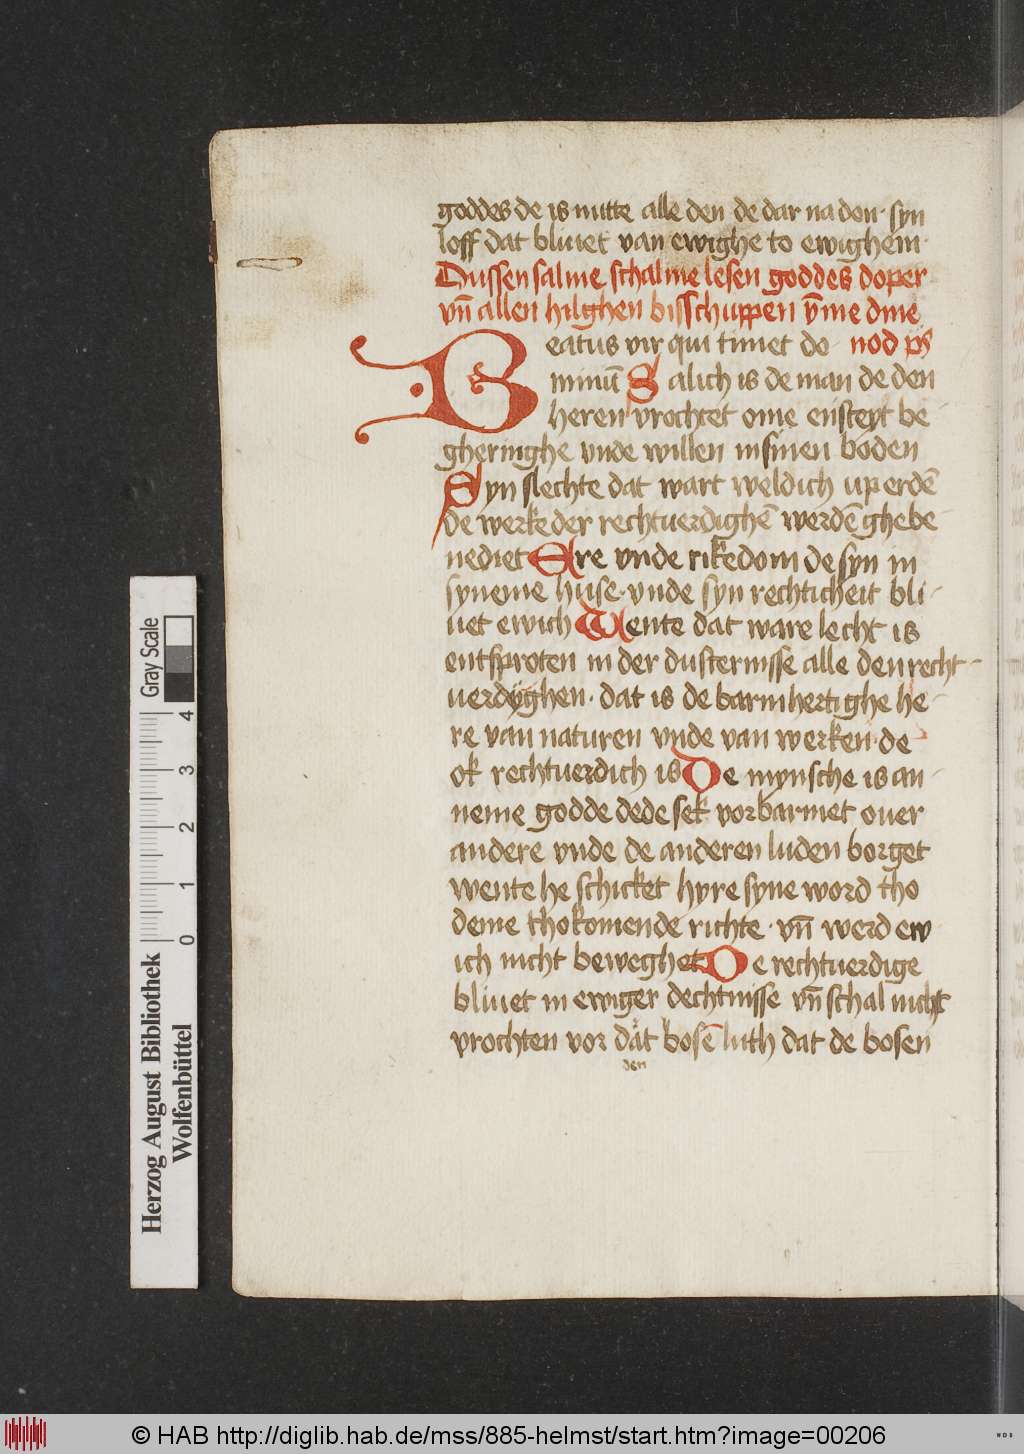 goddes de is nutte alle den de dar na don· syn
loff dat bliuet van ewighe to ewighem·
Dussen salme schalme lesen goddes doper
vn̄ allen hilghen bisschuppen v̄me dme
Beatus vir qui timet do nod ps
minū Salich is de man de den
heren vrochtet ome ensteyt be
gheringhe vnde willen in sinen boden
Syn slechte dat wart weldich up erdē
de werke der rechtuerdighē werdē ghebe
nediet Ere vnde rikedom de syn in
syneme huse· vnde syn rechticheit bli
uet ewich Wente dat ware lecht is
entsproten in der dusternisse alle den recht
uerdyghen· dat is de barmhertighe he
re van naturen vnde van werken· de
ok rechtuerdich is De mynsche is an
neme godde dede sek vorbarmet ouer
andere vnde de anderen luden borget
wente he schicket hyre syne word tho
deme thokomende richte· vn̄ werd ew
ich nicht beweghet De rechtuerdige
bliuet in ewiger dechtnisse vn̄ schal nicht
vrochten vor dat bosē luth dat de bosen
den
Gray Scale
4
3
2
1
0
Herzog August Bibliothek
Wolfenbüttel
© HAB http://diglib.hab.de/mss/885-helmst/start.htm?image=00206